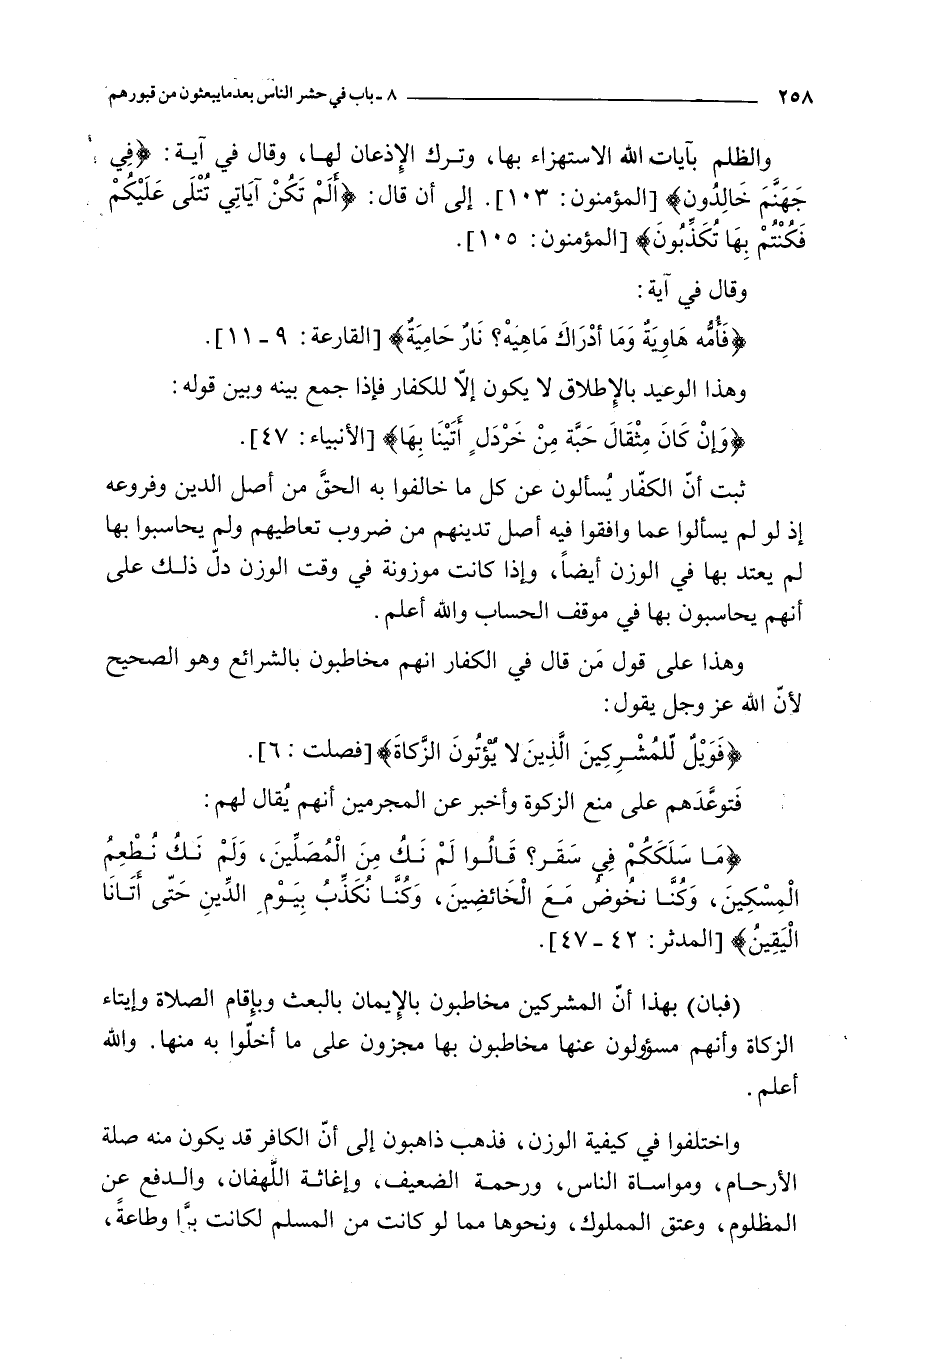 ٢٥٨ ـــــــــــــــــــــــ ٨ ـ باب في حشر الناس بعدما يبعثون من قبورهم
والظلم بآيات الله الاستهزاء بها، وترك الإذعان لها، وقال في آية: ﴿فِي
جَهَنَّمَ خَالِدُون﴾ [المؤمنون: ١٠٣]. إلى أن قال: ﴿أَلَمْ تَكُنْ آيَاتِي تُتْلَى عَلَيْكُمْ
فَكُنْتُمْ بِهَا تُكَذِّبُونَ﴾ [المؤمنون: ١٠٥].
وقال في آية:
﴿فَأُمُّه هَاوِيَةٌ وَمَا أدْرَاكَ مَاهِيَهْ؟ نَارٌ حَامِيَةٌ﴾ [القارعة: ٩ ـ ١١].
وهذا الوعيد بالإطلاق لا يكون إلّا للكفار فإذا جمع بينه وبين قوله:
﴿وَإنْ كَانَ مِثْقَالَ حَبَّة مِنْ خَرْدَلٍ أَتَيْنَا بِهَا﴾ [الأنبياء: ٤٧].
ثبت أنّ الكفّار يُسألون عن كل ما خالفوا به الحقَّ من أصل الدين وفروعه
إذ لو لم يسألوا عما وافقوا فيه أصل تدينهم من ضروب تعاطيهم ولم يحاسبوا بها
لم يعتد بها في الوزن أيضاً، وإذا كانت موزونة في وقت الوزن دلّ ذلك على
أنهم يحاسبون بها في موقف الحساب والله أعلم.
وهذا على قول مَن قال في الكفار انهم مخاطبون بالشرائع وهو الصحيح
لأنّ الله عز وجل يقول:
﴿فَوَيْلٌ لّلمُشْرِكِينَ الَّذِينَ لا يُؤْتُونَ الزَّكاةَ﴾ [فصلت : ٦].
فَتوعَّدَهم على منع الزكوة وأخبر عن المجرمين أنهم يُقال لهم:
﴿مَا سَلَكَكُمْ فِي سَقَر؟ قَالُوا لَمْ نَكُ مِنَ الْمُصَلِّينَ، وَلَمْ نَكُ نُطْعِمُ
الْمِسْكِينَ، وَكُنَّا نَخُوضُ مَعَ الْخَائضِينَ، وَكُنَّا نُكَذِّبُ بِيَوْمِ الدِّينِ حَتّى أَتَانَا
الْيَقِينُ﴾ [المدثر: ٤٢ ـ ٤٧].
(فبان) بهذا أنّ المشركين مخاطبون بالإيمان بالبعث وبإقام الصلاة وإيتاء
الزكاة وأنهم مسؤولون عنها مخاطبون بها مجزون على ما أخلّوا به منها. والله
أعلم.
واختلفوا في كيفية الوزن، فذهب ذاهبون إلى أنّ الكافر قد يكون منه صلة
الأرحام، ومواساة الناس، ورحمة الضعيف، وإغاثة اللّهفان، والدفع عن
المظلوم، وعتق المملوك، ونحوها مما لو كانت من المسلم لكانت برَّا وطاعةً،